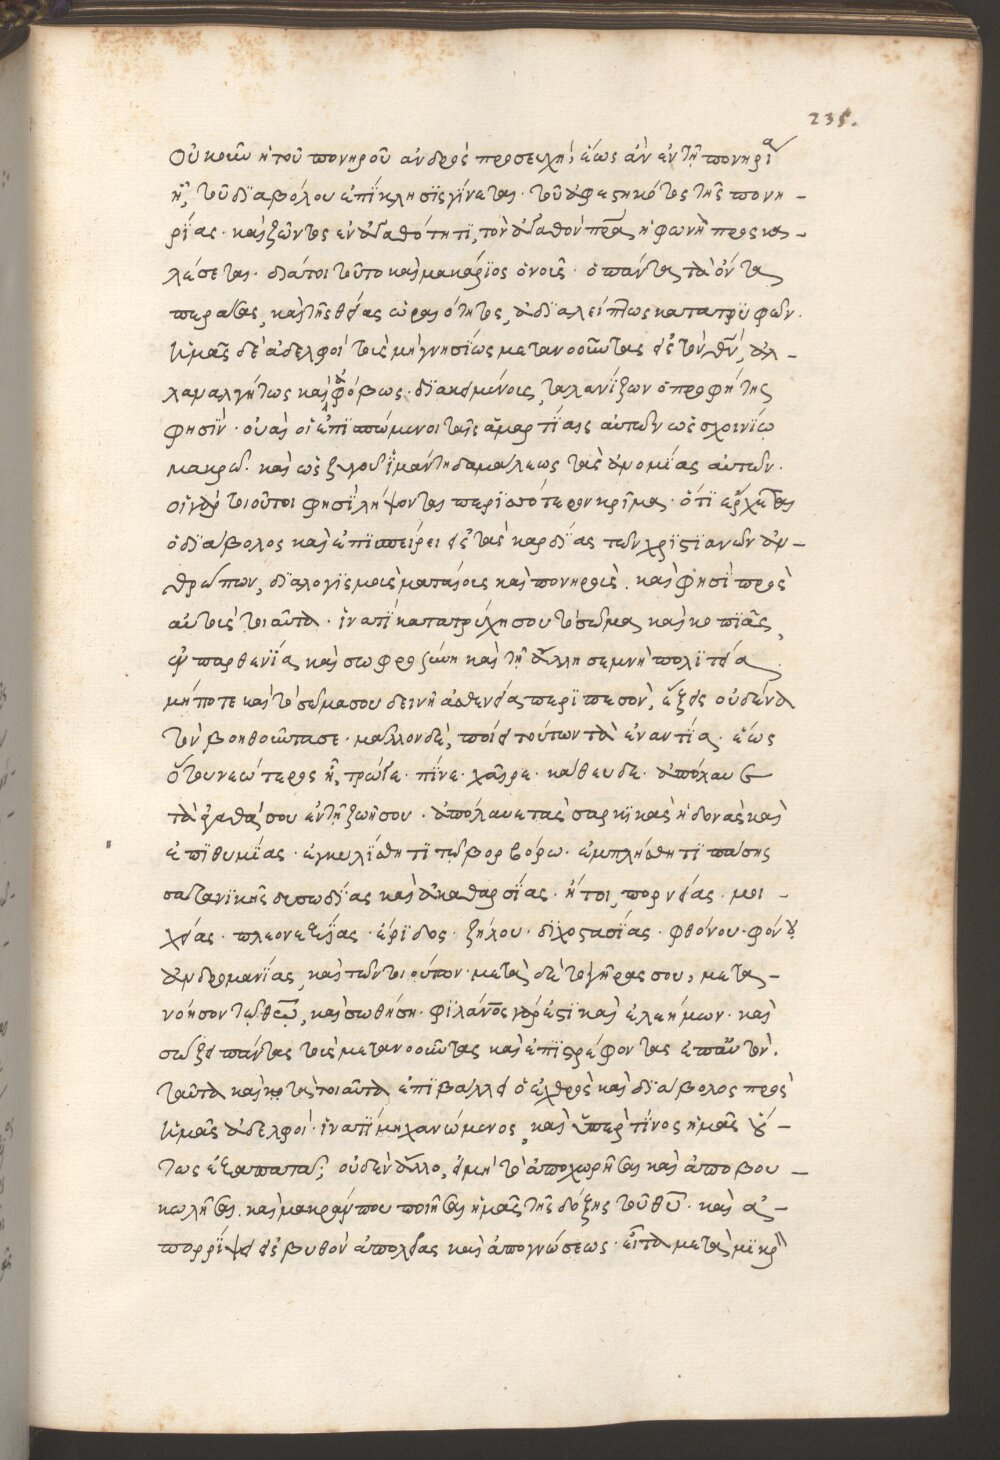 235.
Οὐκοῦν ἡ τοῦ πονηροῦ ανδρὸς προσευχὴ, ἑώς ἀν ἐν τῇ πονηρία
ῇ, τοῦ δϊαβόλου ἐπΐκλησϊς γίνεται · τοῦ ἀφεστηκότος τῆς πονη -
ρΐας · καὶ ζῶντος ἐν ἀγαθότητϊ, τὸν ἀγαθὸν πρα ἡ φωνὴ προσκα -
λέσεται · διάτοι τοῦτο καὶ μακάρϊος ὁ νοῦς · ὁ πάντα τὰ ὀντα
περάσας, καὶ τῆς θείας ὡραιότητος, ἀδϊαλείπτως κατατρϋφῶν ·
ὑμᾶς δὲ ἀδελφοὶ τοὺς μὴ γνησίως μετανοοῦντας εἰς τὸν θν, ἀλ -
λὰ μαλγήτως καὶ ἀφόβως · δϊακειμένοις, ταλανΐζων ὁ προφήτης
φησϊν · οὐαὶ οἱ ἐπϊσπώμενοι τὰς ἁμαρτΐας αὐτῶν ὡς σχοινίω
μακρῶ · καὶ ὡς ζυγοῦ ϊμάντη δαμάλεως τὰς ἀνομίας αὐτῶν ·
οἱ γὰρ τοιοῦτοι φησϊ λήψονται περϊσσότερον κρῖμα · ὅτϊ ἔρχεται
ὁ δϊάβολος καὶ ἐπϊσπείρει εἰς τὰς καρδΐας τῶν χρϊστϊανῶν ἀν -
θρώπων, δϊαλογϊσμοὺς ματαίοις καὶ πονηροὺς · καὶ φησϊ πρὸς
αὐτοὺς τοιαῦτα · ἵνατϊ κατατρύχη σου τὸ σῶμα καὶ κοπϊᾶς,
ἐν παρθενΐα καὶ σωφροσύνη καὶ τῇ ἄλλη σεμνὴ πολϊτεία
μήποτε καὶ τὸ σῶμα σου δεινῆ ἀσθενεία περϊπεσὸν, ἕξεις οὐδένα
τὸν βοηθοῦντα σε · μᾶλλον δὲ, ποίει τούτων τὰ ἐναντΐα · ἑώς
ὅτου νεώτερος ῇ, τρῶγε · πῖνε · χαῖρε · κάθευδε · ἀπόλαυε
τὰ ἀγαθά σου ἐν τῇ ζωῇ σου · ἀπόλαυε τὰς σαρκϊκὰς ἡδονὰς καὶ
ἐπϊθυμΐας · ἐγκυλΐσθητϊ τῶ βορβόρω · ἐμπλήσθητϊ πάσης
σατανϊκῆς δυσωδΐας καὶ ἀκαθαρσΐας · ἤτοι, πορνείας · μοι -
χείας · πλεονεξΐας · ἔρϊδος · ζήλου · δϊχοστασΐας · φθόνου · φόνου
ἀνδρομανΐας, καὶ τῶν τοιούτων · μετὰ δὲ τὸ γῆρας σου, μετα -
νόησον τῶ θεῶ, καὶ σωθήση · φϊλάνος γάρ ἐστϊ καὶ ἐλεήμων · καὶ
σώζει πάντας τοὺς μετανοοῦντας καὶ ἐπϊστρέφοντας ἐπ αὐτὸν ·
ταῦτα καὶ τὰ τοιαῦτα ἐπϊβάλλει ὁ ἐχθρὸς καὶ δϊάβολος πρὸς
ὑμᾶς ἀδελφοὶ · ἵνατΐ μηχανώμενος, καὶ ὑπὲρ τίνος ἡμᾶς οὕ -
τως ἐξαπατᾶ; οὐδὲν ἄλλο, εἰ μὴ τὸ ἀποχωρῆσαι καὶ ἀποβου -
κωλῆσαι · καὶ μακράν που ποιῆσαι ἡμᾶς τῆς δόξης τοῦ θυ · καὶ ἀ -
πορρϊψει εἰς βυθὸν ἀπολείας καὶ ἀπογνώσεως · εἶτα μετὰ μϊκρ